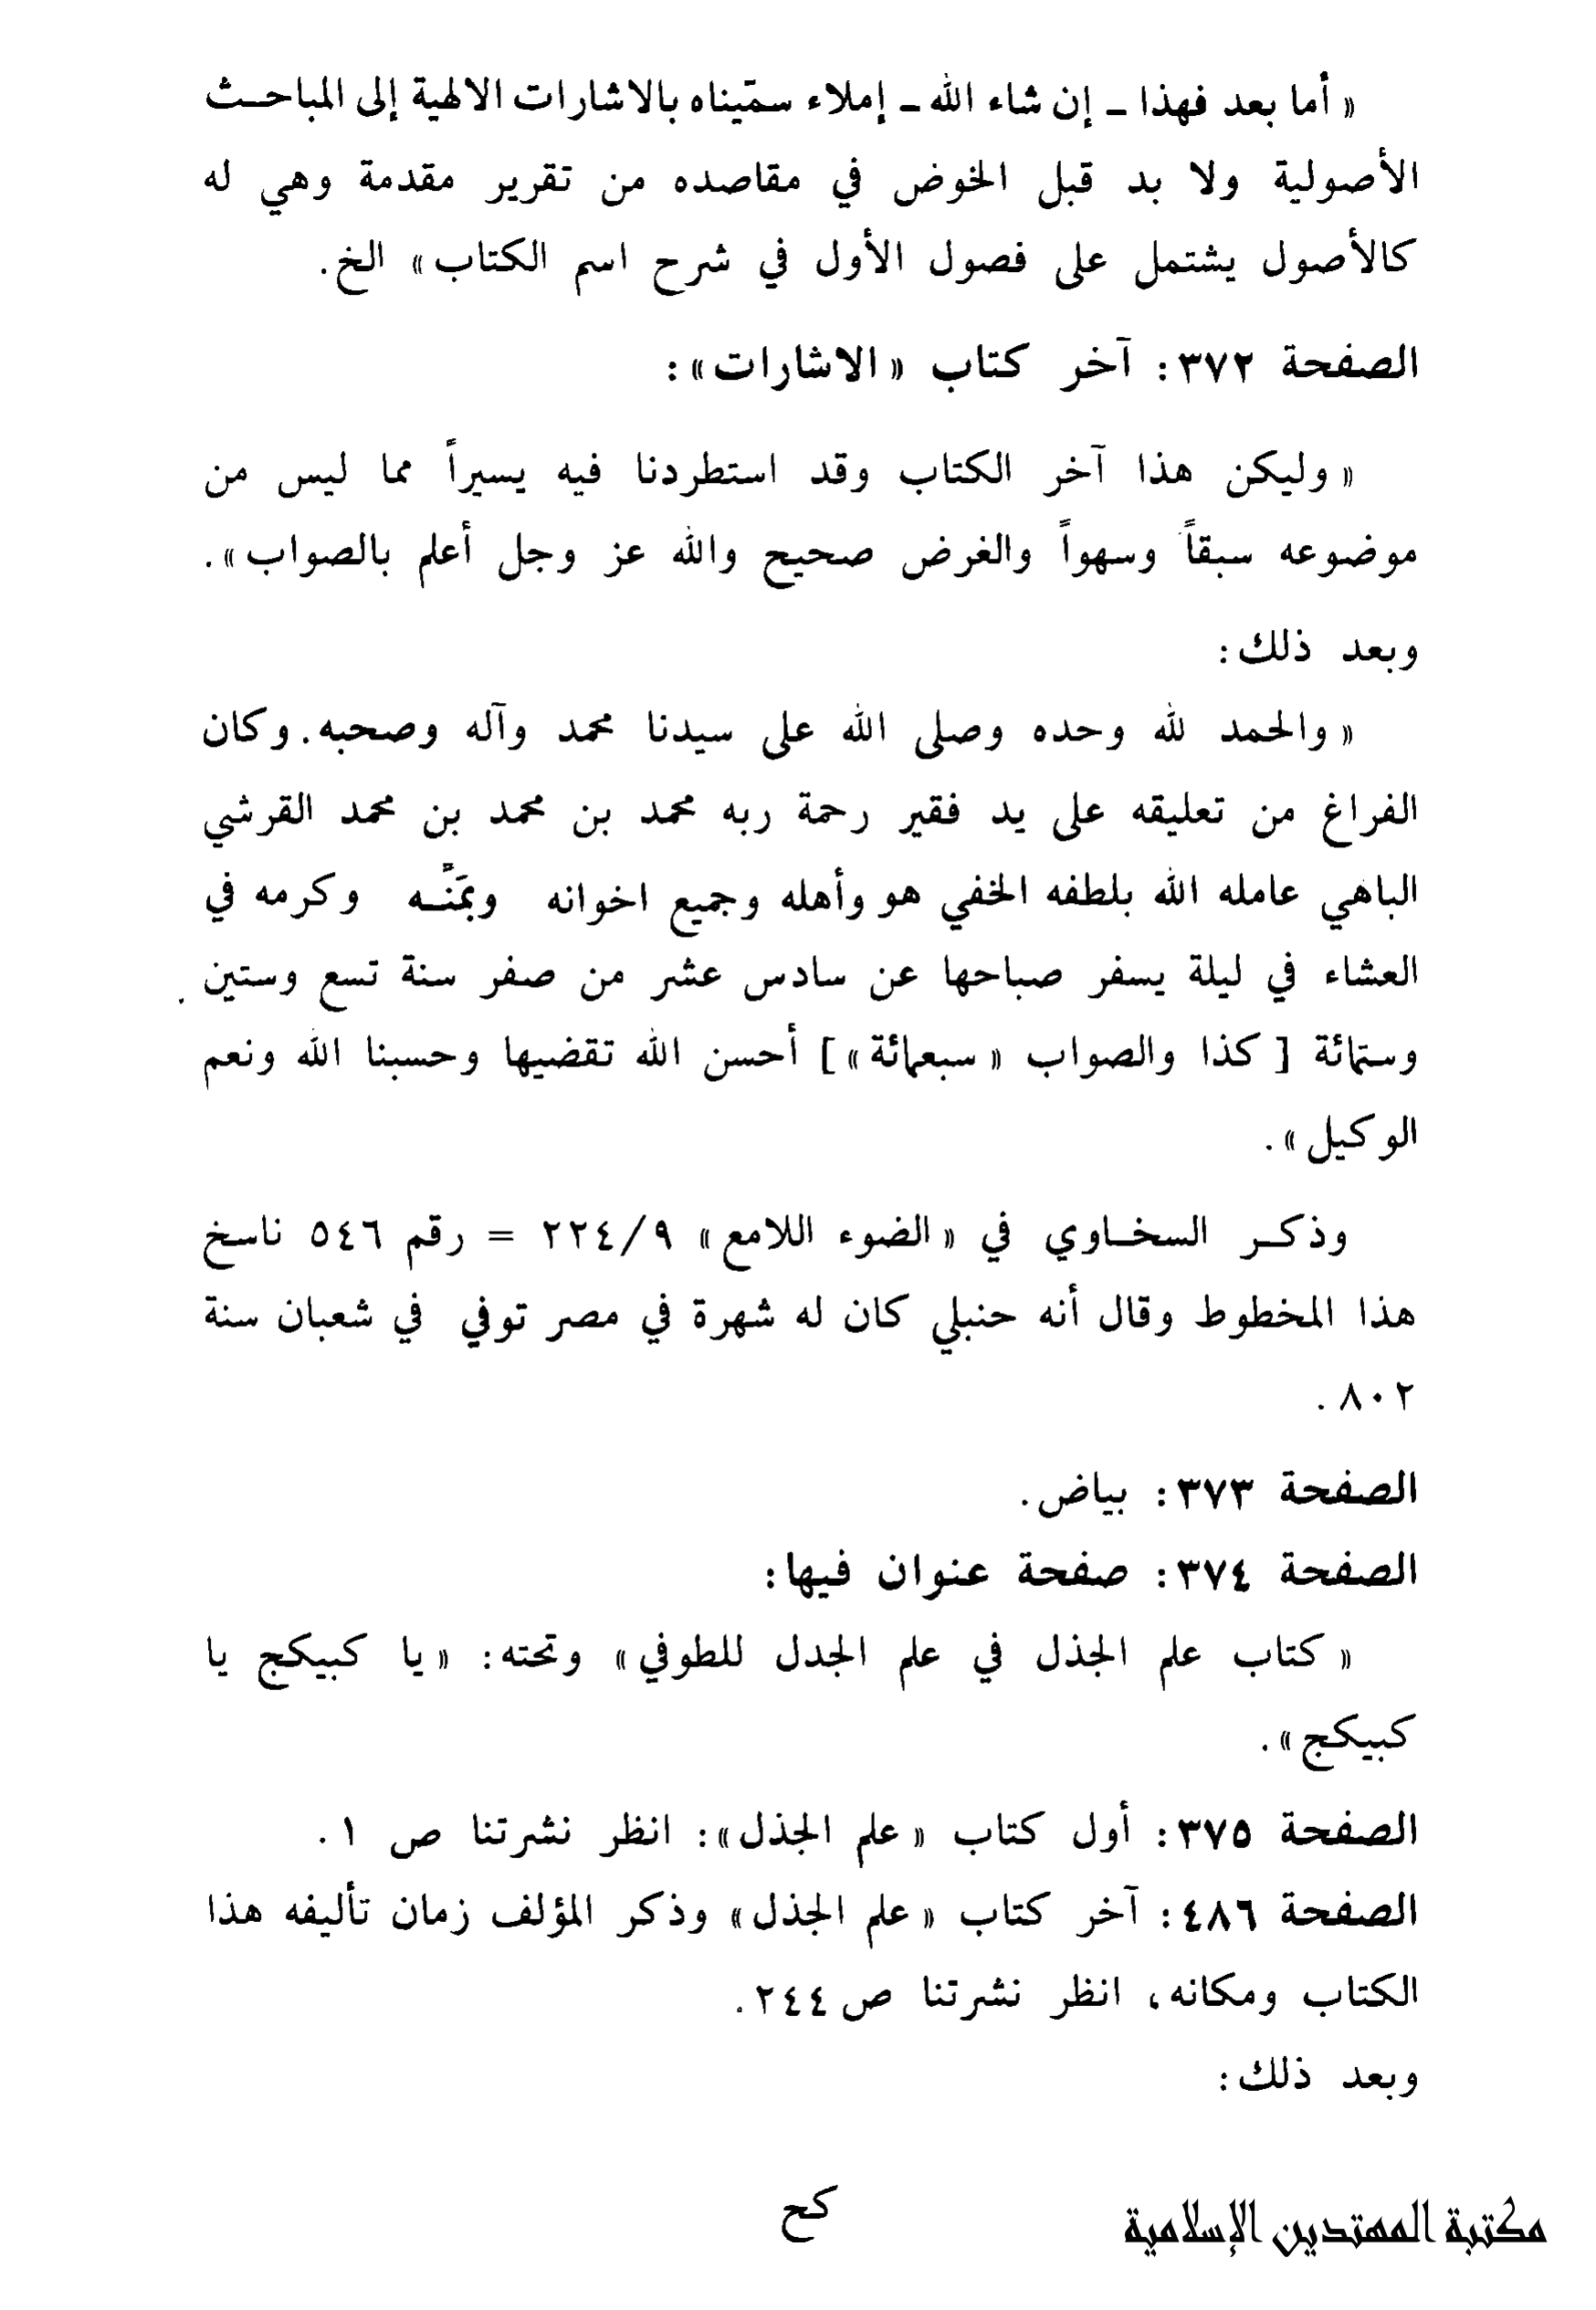 « أما بعد فهذا ـ إن شاء الله ـ إملاء سمّيناه بالاشارات الالهية إلى المباحث
الأصولية ولا بد قبل الخوض في مقاصده من تقرير مقدمة وهي له
كالأصول يشتمل على فصول الأول في شرح اسم الكتاب» الخ.
الصفحة ٣٧٢: آخر كتاب «الاشارات»:
« وليكن هذا آخر الكتاب وقد استطردنا فيه يسيراً مما ليس من
موضوعه سبقاً وسهواً والغرض صحيح والله عز وجل أعلم بالصواب».
وبعد ذلك:
« والحمد لله وحده وصلى الله على سيدنا محمد وآله وصحبه. وكان
الفراغ من تعليقه على يد فقير رحمة ربه محمد بن محمد بن محمد القرشي
الباهي عامله الله بلطفه الخفي هو وأهله وجميع اخوانه وبمَنِّه وكرمه في
العشاء في ليلة يسفر صباحها عن سادس عشر من صفر سنة تسع وستين
وستمائة [ كذا والصواب « سبعمائة »] أحسن الله تقضيها وحسبنا الله ونعم
الوكيل».
وذكر السخاوي في «الضوء اللامع» ٩/٢٢٤ = رقم ٥٤٦ ناسخ
هذا المخطوط وقال أنه حنبلي كان له شهرة في مصر توفي في شعبان سنة
٨٠٢.
الصفحة ٣٧٣: بياض.
الصفحة ٣٧٤: صفحة عنوان فيها:
« كتاب علم الجذل في علم الجدل للطوفي» وتحته: «يا كبيكج يا
كبيكج».
الصفحة ٣٧٥: أول كتاب «علم الجذل»: انظر نشرتنا ص ١.
الصفحة ٤٨٦: آخر كتاب «علم الجذل» وذكر المؤلف زمان تأليفه هذا
الكتاب ومكانه، انظر نشرتنا ص ٢٤٤.
وبعد ذلك:
كح
مكتبة المهتدين الإسلامية